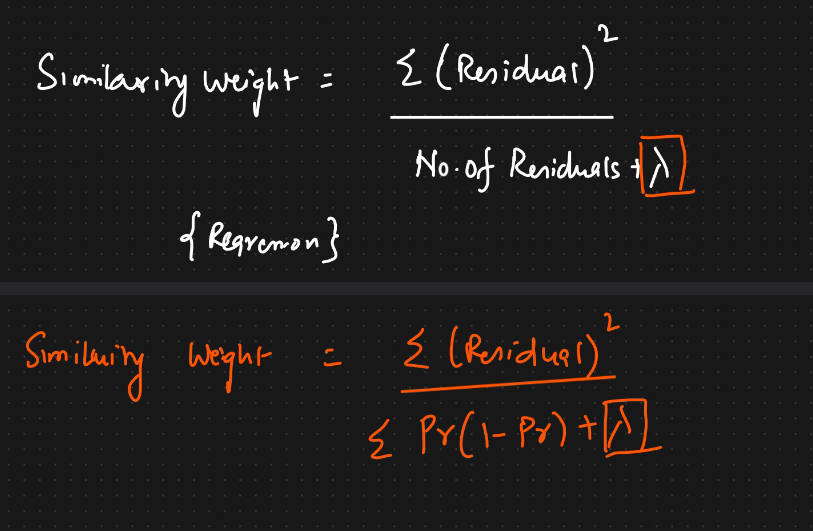 Similarity Weight = Σ (Residual)²
No. of Residuals + λ
{Regression}
Similarity Weight = Σ (Residual)²
Σ Pr(1 - Pr) + λ